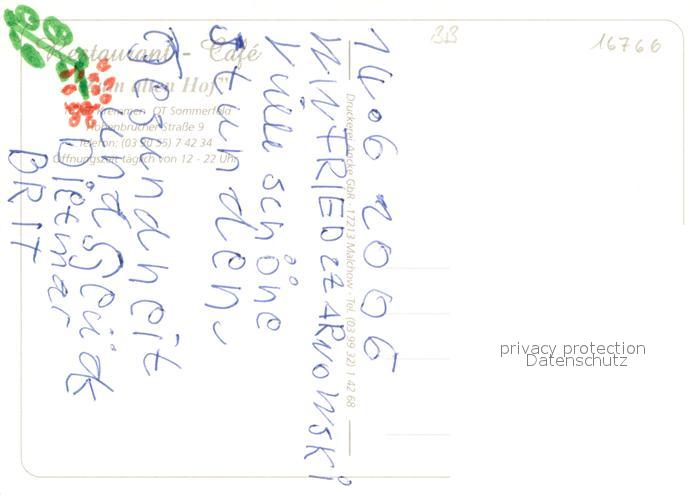 14.06 2006
WINFRIED CZARNOWSKI
Viele schöne
Stunden
Gesundheit
und Glück
Dietmar
BRIT
Restaurant - Café
"Am alten Hof"
Kremmen OT Sommerfeld
Hohenbrucher Straße 9
Telefon: (03 30 55) 7 42 34
Öffnungszeit täglich von 12 - 22 Uhr
Druckerei Aacke GbR · 17213 Malchow · Tel. (03 99 32) 1 42 68
16766
privacy protection
Datenschutz